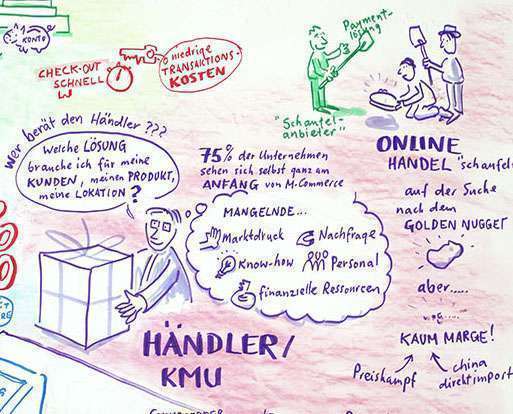 KONTO
CHECK-OUT
SCHNELL
niedrige
TRANSAKTIONS-
KOSTEN
Payment-
lösung
"Schaufel-
anbieter"
Wer berät den Händler ???
Welche LÖSUNG
brauche ich für meine
KUNDEN, meinen PRODUKT,
meine LOKATION?
75% der Unternehmen
sehen sich selbst ganz am
ANFANG von M-Commerce
MANGELNDE...
Marktdruck
Nachfrage
Know-how
Personal
finanzielle Ressourcen
HÄNDLER/
KMU
ONLINE
HANDEL "schaufel
auf der Suche
nach dem
GOLDEN NUGGET
aber.....
KAUM MARGE!
Preiskampf
china
direktimport